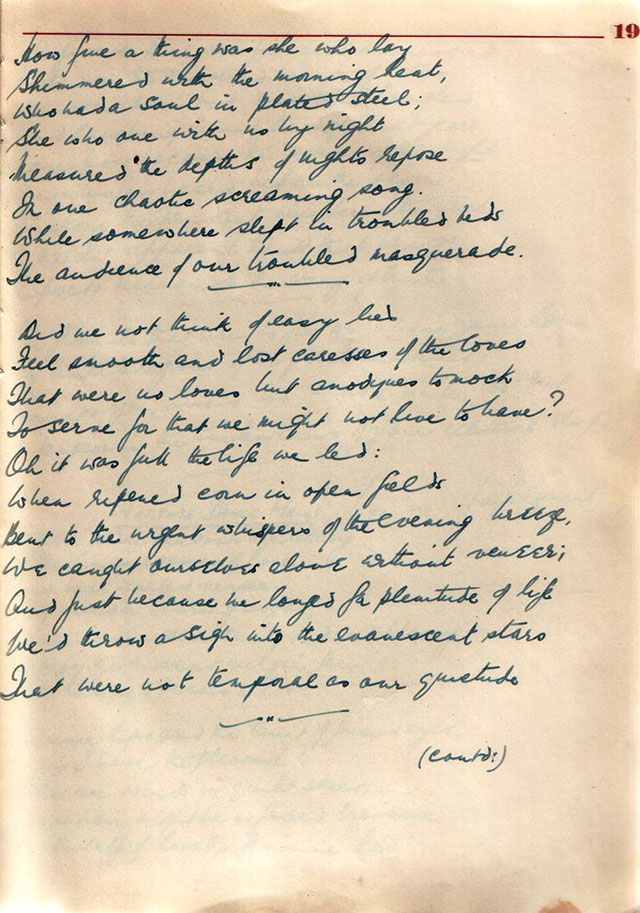 19
How fine a thing was she who lay
Shimmered with the morning heat,
Who had a soul in plated steel;
She who one with us by night
Measured the depths of nights repose
In one chaotic screaming song.
While somewhere slept in troubled beds
The audience of our troubled masquerade.
Did we not think of easy lies
Feel smooth and lost caresses of the loves
That were no loves but anodynes to mock
To serve for that we might not live to have?
Oh it was full the life we led:
When ripened corn in open fields
Bent to the urgent whispers of the evening breeze,
We caught ourselves alone without veneer;
And just because we longed for plenitude of life
We'd throw a sigh into the evanescent stars
That were not temporal as our quietude
(contd:)